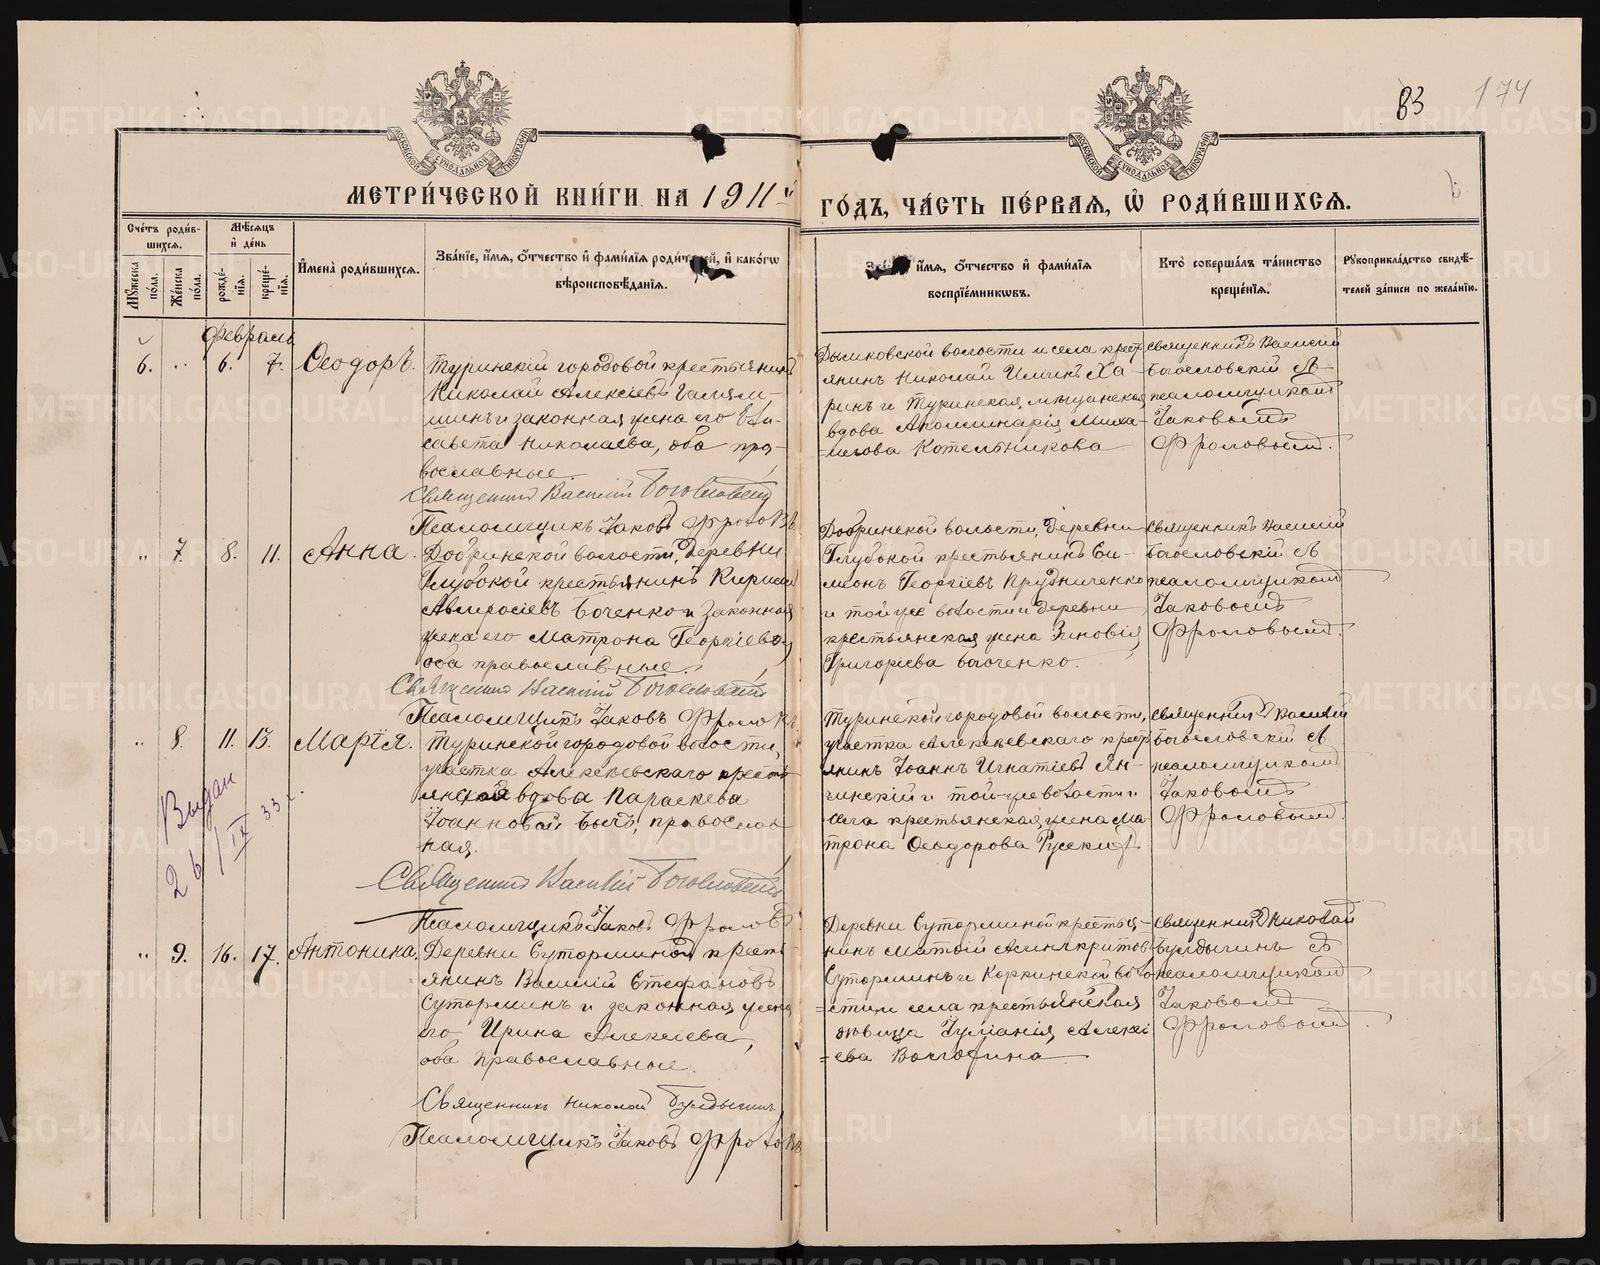 83 174
МЕТРИ́ЧЕСКОЙ КНИ́ГИ НА 1911й ГО́ДЪ, ЧА́СТЬ ПЕ́РВАЯ, Ѡ РОДИ́ВШИХСЯ.
Сче́тъ роди́в-
шихся.
Му́жеска по́ла.
Же́нска по́ла.
Мѣ́сяцъ
и҆ де́нь
рожде́-
нїя.
креще́-
нїя.
И҆мена̀ роди́вшихся.
Зва́нїе, и҆́мя, ѻ҆́тчество и҆ фами́лїя роди́телей, и҆ како́гѡ
вѣроисповѣ́данїя.
и҆́мя, ѻ҆́тчество и҆ фами́лїя
воспрїе́мникѡвъ.
Кто̀ соверша́лъ та́инство
креще́нїя.
Рꙋкоприкла́дство свидѣ́-
телей за́писи по жела́нїю.
Февраль
6. „ 6. 7. Ѳеодоръ.
Туринскій городовой крестьянинъ
Николай Алексѣевъ
и законная жена его Ели-
савета Николаева, оба пра-
вославные
Священникъ Василій Богословскій
Псаломщикъ Іаковъ Фроловъ
Дымковской волости и села крест-
янинъ Николай Иліинъ Ха-
ринъ и Туринская мѣщанская
вдова Аполлинарія Миха-
илова Котельникова
Священникъ Василій
Богословскій съ
псаломщикомъ
Іаковомъ
Фроловымъ.
„ 7. 8. 11. Анна.
Добринской волости, деревни
Глубокой крестьянинъ Кириллъ
Амвросіевъ Боченко и законная
жена его Матрона Георгіева,
оба православные.
Священникъ Василій Богословскій
Псаломщикъ Іаковъ Фроловъ
Добринской волости, деревни
Глубокой крестьянинъ Си-
меонъ Георгіевъ Прудниченко
и той же волости и деревни
крестьянская жена Зиновія
Григоріева Боченко.
Священникъ Василій
Богословскій съ
псаломщикомъ
Іаковомъ
Фроловымъ.
„ 8. 11. 13. Марія.
Туринской городовой волости,
участка Алексѣевскаго кресть-
янская вдова Параскева
Іоаннова Бычъ, православ-
ная.
Священникъ Василій Богословскій
Псаломщикъ Іаковъ Фроловъ
Туринской городовой волости,
участка Алексѣевскаго крест-
янинъ Іоаннъ Игнатіевъ Ян-
чинскій и той-же волости и
села крестьянская жена Ма-
трона Ѳеодорова Русскихъ.
Священникъ Василій
Богословскій съ
псаломщикомъ
Іаковомъ
Фроловымъ.
Выдан
26/IX 33 г.
„ 9. 16. 17. Антонина.
Деревни Суторминой кресть-
янинъ Василій Стефановъ
Суторминъ и законная жена
его Ирина Алексіева,
оба православные.
Священникъ Николай Булдыгинъ
Псаломщикъ Іаковъ Фроловъ
Деревни Суторминой крестья-
нинъ
Суторминъ и Коркинской воло-
сти и села крестьянская
дѣвица Іуліанія Алексі-
ева
Священникъ Николай
Булдыгинъ съ
псаломщикомъ
Іаковомъ
Фроловымъ.
METRIKI.GASO-URAL.RU